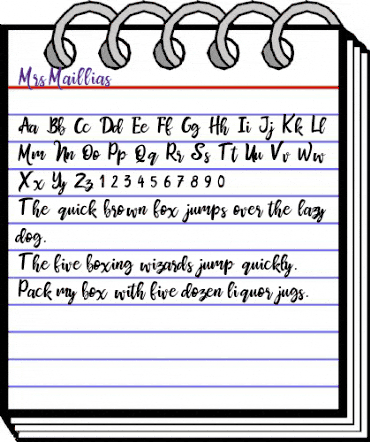 Mrs Maillias
Aa Bb Cc Dd Ee Ff Gg Hh Ii Jj Kk Ll
Mm Nn Oo Pp Qq Rr Ss Tt Uu Vv Ww
Xx Yy Zz 1 2 3 4 5 6 7 8 9 0
The quick brown fox jumps over the lazy
dog.
The five boxing wizards jump quickly.
Pack my box with five dozen liquor jugs.